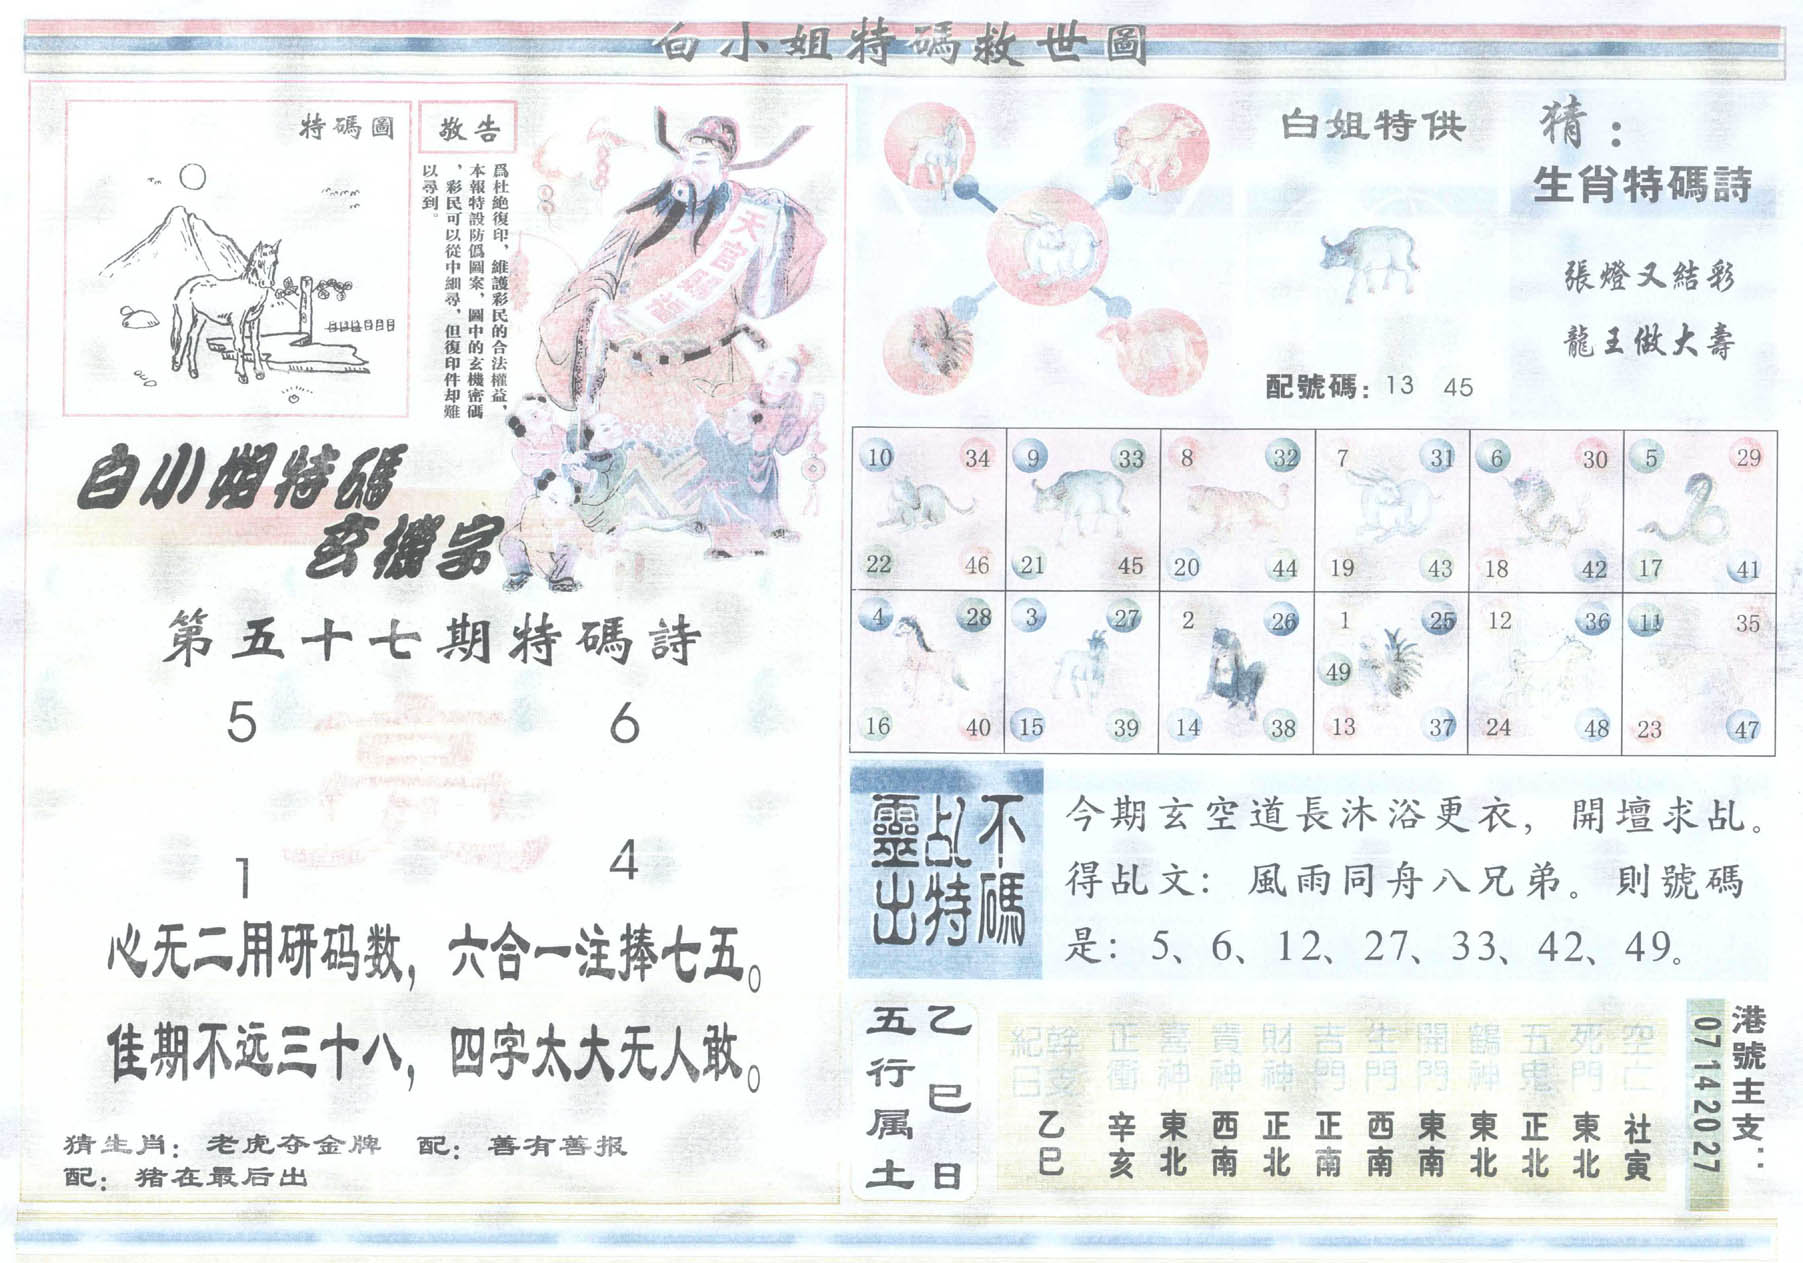 白小姐特碼救世圖
特碼圖
敬告
爲杜絶復印，維護彩民的合法權益，
本報特設防僞圖案，圖中的玄機密碼
，彩民可以從中細尋，但復印件却難
以尋到。
天官賜福
白小姐特碼
玄機字
第五十七期特碼詩
5 6
1 4
心无二用研码数，六合一注捧七五。
佳期不远三十八，四字太大无人敢。
猜生肖：老虎夺金牌 配：善有善报
配：猪在最后出
白姐特供
配號碼：13 45
猜：
生肖特碼詩
張燈又結彩
龍王做大壽
10 34 9 33 8 32 7 31 6 30 5 29
22 46 21 45 20 44 19 43 18 42 17 41
4 28 3 27 2 26 1 25 12 36 11 35
49
16 40 15 39 14 38 13 37 24 48 23 47
不碼
乩特
靈出
今期玄空道長沐浴更衣，開壇求乩。
得乩文：風雨同舟八兄弟。則號碼
是：5、6、12、27、33、42、49。
乙巳日
五行属土
幹支 正衝 喜神 貴神 財神 吉門 生門 開門 鶴神 五鬼 死門 空亡
紀日
乙巳 辛亥 東北 西南 正北 正南 西南 東南 東北 正北 東北 社寅
港號主支：
07 14 20 27